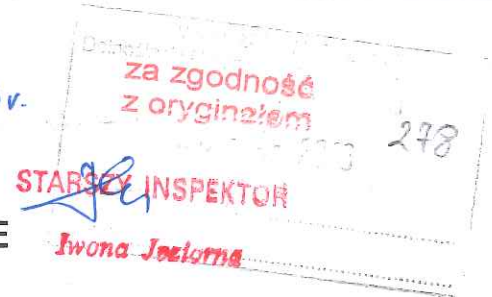 za zgodność
z oryginałem
v.
278
STARSZY INSPEKTOR
Iwona Jeziorna